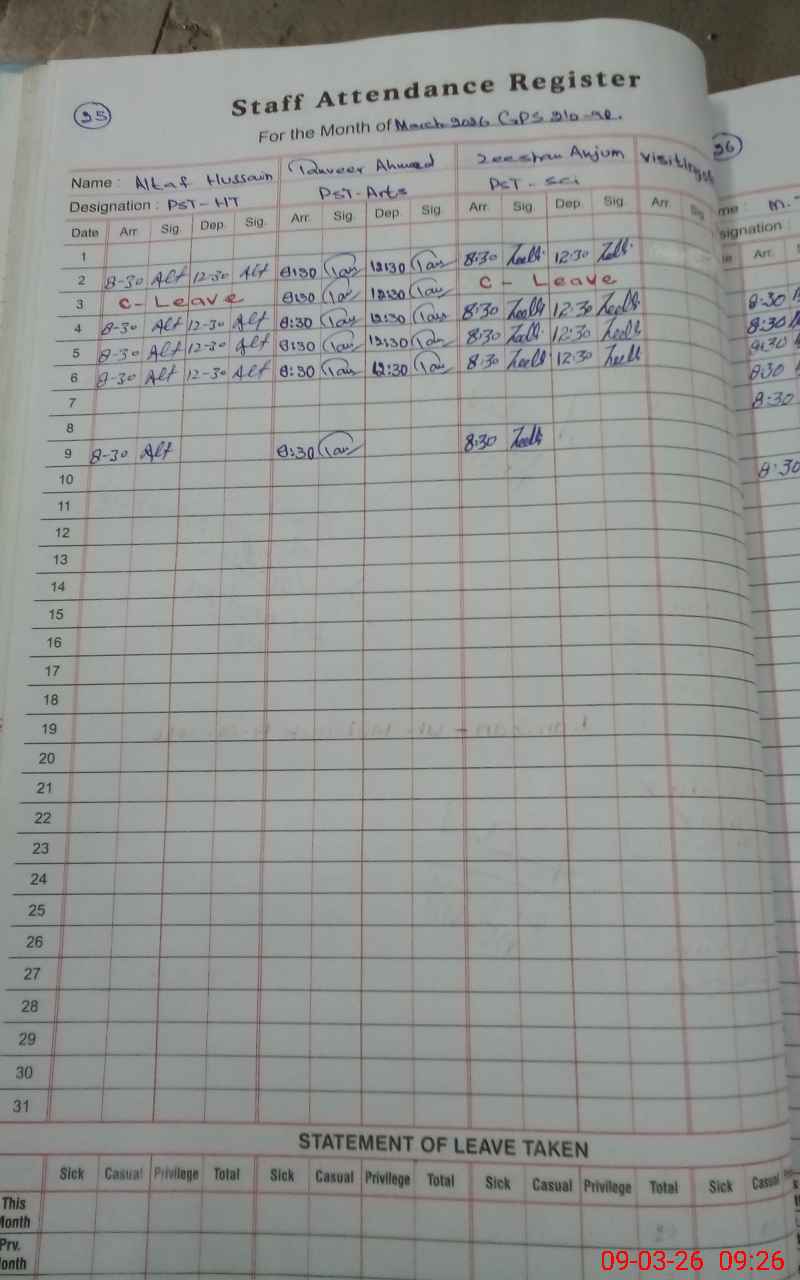 35
Staff Attendance Register
For the Month of March 2026 GPS 210-9R.
36
Name : Altaf Hussain Tanveer Ahmed Zeeshan Anjum Visiting
Designation : PST-HT PST-Arts PST-Sci
Date Arr. Sig. Dep. Sig. Arr. Sig. Dep. Sig. Arr. Sig. Dep. Sig. Arr. Sig
1
2 8-30 Alt 12-30 Alt 8:30 Tan 12:30 Tan 8:30 Zeeh 12:30 Zeeh
3 C-Leave 8:30 Tan 12:30 C-Leave
4 8-30 Alt 12-30 Alt 8:30 Tan 12:30 Tan 8:30 Zeeh 12:30 Zeeh
5 8-30 Alt 12-30 Alt 8:30 Tan 12:30 Tan 8:30 Zeeh 12:30 Zeeh
6 8-30 Alt 12-30 Alt 8:30 Tan 12:30 Tan 8:30 Zeeh 12:30 Zeeh
7
8
9 8-30 Alt 8:30 Tan 8:30 Zeeh
10
11
12
13
14
15
16
17
18
19
20
21
22
23
24
25
26
27
28
29
30
31
me : M.
signation :
Arr.
8:30
8:30
8:30
8:30
8:30
8:30
STATEMENT OF LEAVE TAKEN
Sick Casual Privilege Total Sick Casual Privilege Total Sick Casual Privilege Total Sick Casual
This Month
Prv. onth
09-03-26 09:26